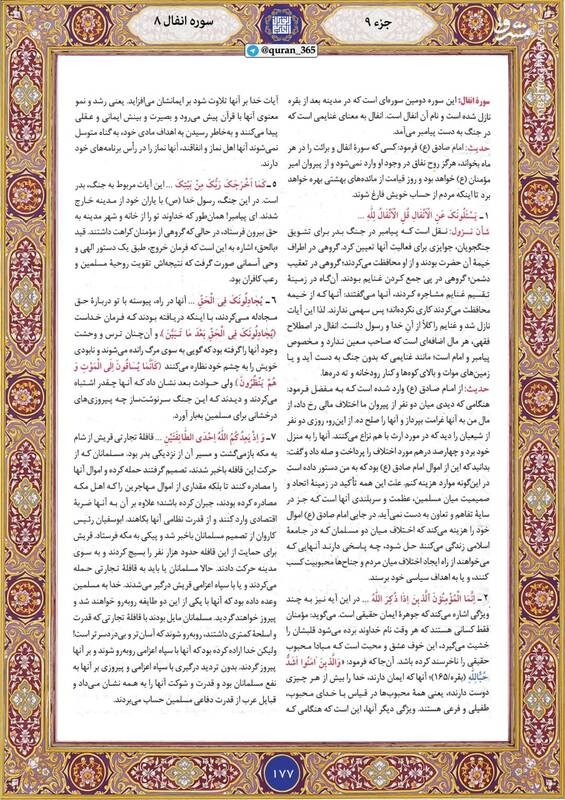 جزء ۹
سوره انفال ۸
@quran_365
مشرق
سورهٔ انفال: این سوره دومین سوره‌ای است که در مدینه بعد از بقره
نازل شده است و نام آن انفال است. انفال به معنای غنایمی است که
در جنگ به دست پیامبر می‌آمد.
حدیث: امام صادق (ع) فرمود: کسی که سورهٔ انفال و برائت را در هر
ماه بخواند، هرگز روح نفاق در وجود او وارد نمی‌شود و از پیروان امیر
مؤمنان (ع) خواهد بود و روز قیامت از مائده‌های بهشتی بهره خواهد
برد تا اینکه مردم از حساب خویش فارغ شوند.
۱- یَسْئَلُونَکَ عَنِ الْاَنْفَالِ قُلِ الْاَنْفَالُ لِلّٰهِ ...
شأن نزول: نقل است که پیامبر در جنگ بدر برای تشویق
جنگجویان، جوایزی برای فعالیت آنها تعیین کرد. گروهی در اطراف
خیمهٔ آن حضرت بودند و از او محافظت می‌کردند؛ گروهی در تعقیب
دشمن؛ گروهی در پی جمع کردن غنایم بودند. آن‌گاه در زمینهٔ
تقسیم غنایم مشاجره کردند، آنها می‌گفتند: آنها که از خیمه
محافظت می‌کردند کاری نکرده‌اند؛ پس سهمی ندارند. لذا این آیات
نازل شد و غنایم را کلاً از آنِ خدا و رسول دانست. انفال در اصطلاح
فقهی، هر مال اضافه‌ای است که صاحب معین ندارد و مخصوص
پیامبر و امام است؛ مانند غنایمی که بدون جنگ به دست آید و یا
زمین‌های موات و بالای کوه‌ها و کنار رودخانه و ته دره‌ها.
حدیث: از امام صادق (ع) وارد شده است که به مفضل فرمود:
هنگامی که دیدی میان دو نفر از پیروان ما اختلاف مالی رخ داد، از
مال من به آنها غرامت بپرداز و آنها را صلح ده. از این‌رو، روزی دو نفر
از شیعیان را دید که در مورد ارث با هم نزاع می‌کنند. آنها را به منزل
خود برد و چهارصد درهم مورد اختلاف را پرداخت و صلاه داد و گفت:
بدانید که این از اموال امام صادق (ع) بود که به من دستور داده است
در این‌گونه موارد هزینه کنم. علت این همه تأکید در زمینهٔ اتحاد و
صمیمیت میان مسلمین، عظمت و سربلندی آنها است که جز در
سایهٔ تفاهم و تعاون به دست نمی‌آید. در جایی امام صادق (ع) اموال
خود را هزینه می‌کند که اختلاف میان دو مسلمان که در جامعهٔ
اسلامی زندگی می‌کنند حل شود، چه پاسخی دارند آنهایی که
می‌خواهند از راه ایجاد اختلاف میان مردم و جناح‌ها محبوبیت کسب
کنند، و یا به اهداف سیاسی خود برسند.
۲- اِنَّمَا الْمُؤْمِنُونَ الَّذِینَ اِذَا ذُکِرَ اللّٰهُ ... در این آیه نیز به چند
ویژگی اشاره می‌کند که جوهرهٔ ایمان حقیقی است. می‌گوید: مؤمنان
فقط کسانی هستند که هر وقت نام خداوند برده می‌شود قلبشان را
خشیت می‌گیرد، این خوف عشق و محبت است که مبادا محبوب
حقیقی را ناخرسند کرده باشد. آن‌جا که فرمود: «وَالَّذِینَ آمَنُوا اَشَدُّ
حُبًّا لِلّٰهِ (بقره/۱۶۵)؛ آنها که ایمان دارند، خدا را بیش از هر چیزی
دوست دارند»، یعنی همهٔ محبوب‌ها در قیاس با خدای محبوب،
طفیلی و فرعی هستند. ویژگی دیگر آنها، این است که هنگامی که
آیات خدا بر آنها تلاوت شود بر ایمانشان می‌افزاید. یعنی رشد و نمو
معنوی آنها با قرآن پیش می‌رود و بصیرت و بینش ایمانی و عقلی
پیدا می‌کنند و به‌خاطر رسیدن به اهداف مادی خود، به گناه متوسل
نمی‌شوند آنها اهل نماز و انفاقند، آنها نماز را در رأس برنامه‌های خود
دارند.
۵- کَمَا اَخْرَجَکَ رَبُّکَ مِنْ بَیْتِکَ ... این آیات مربوط به جنگ، بدر
است. در این جنگ، رسول خدا (ص) با یاران خود از مدینه خارج
شدند. ای پیامبر! همان‌طور که خداوند تو را از خانه و شهر مدینه به
حق بیرون فرستاد، در حالی که گروهی از مؤمنان کراهت داشتند. قید
«بالحق» اشاره به این است که فرمان خروج، طبق یک دستور الهی و
وحی آسمانی صورت گرفت که نتیجه‌اش تقویت روحیهٔ مسلمین و
رعب کافران بود.
۶- یُجَادِلُونَکَ فِی الْحَقِّ ... آنها در راه، پیوسته با تو دربارهٔ حق
مجادله می‌کردند، با اینکه دریافته بودند که فرمان خداست
(یُجَادِلُونَکَ فِی الْحَقِّ بَعْدَ مَا تَبَیَّنَ)، و آن‌چنان ترس و وحشت
وجود آنها را گرفته بود که گویی به سوی مرگ رانده می‌شوند و نابودی
خویش را به چشم خود نظاره می‌کنند (کَاَنَّمَا یُسَاقُونَ اِلَی الْمَوْتِ وَ
هُمْ یَنْظُرُونَ) ولی حوادث بعد نشان داد که آنها چقدر اشتباه
می‌کردند و دیدند که این جنگ سرنوشت‌ساز چه پیروزی‌های
درخشانی برای مسلمین به‌بار آورد.
۷- وَ اِذْ یَعِدُکُمُ اللّٰهُ اِحْدَی الطَّائِفَتَیْنِ ... قافلهٔ تجارتی قریش از شام
به مکه بازمی‌گشت و مسیر آن از نزدیکی بدر بود. مسلمانان که از
حرکت این قافله باخبر شدند، تصمیم گرفتند حمله کرده و اموال آنها
را مصادره کنند تا بلکه مقداری از اموال مهاجرین را که اهل مکه
مصادره کرده بودند، جبران کرده باشند؛ علاوه بر آن به آنها ضربهٔ
اقتصادی وارد کنند و از قدرت نظامی آنها بکاهند. ابوسفیان رئیس
کاروان از تصمیم مسلمانان باخبر شد و پیکی به مکه فرستاد. قریش
برای حمایت از این قافله حدود هزار نفر را بسیج کردند و به سوی
مدینه حرکت دادند. حالا مسلمانان یا باید به قافلهٔ تجارتی حمله
می‌کردند و یا با سپاه اعزامی قریش درگیر می‌شدند. خدا به مسلمین
وعده داده بود که آنها با یکی از این دو طایفه روبه‌رو خواهند شد و
پیروز خواهند گردید. مسلمانان مایل بودند با قافلهٔ تجارتی که قدرت
و اسلحهٔ کمتری داشتند، روبه‌رو شوند که آسان‌تر و بی‌دردسرتر است!
ولیکن خدا اراده کرده بود که آنها با سپاه اعزامی روبه‌رو شوند و بر آنها
پیروز گردند. بدون تردید درگیری با سپاه اعزامی و پیروزی بر آنها به
نفع مسلمانان بود و قدرت و شوکت آنها را به همه نشان می‌داد و
قبایل عرب از قدرت دفاعی مسلمین حساب می‌بردند.
۱۷۷